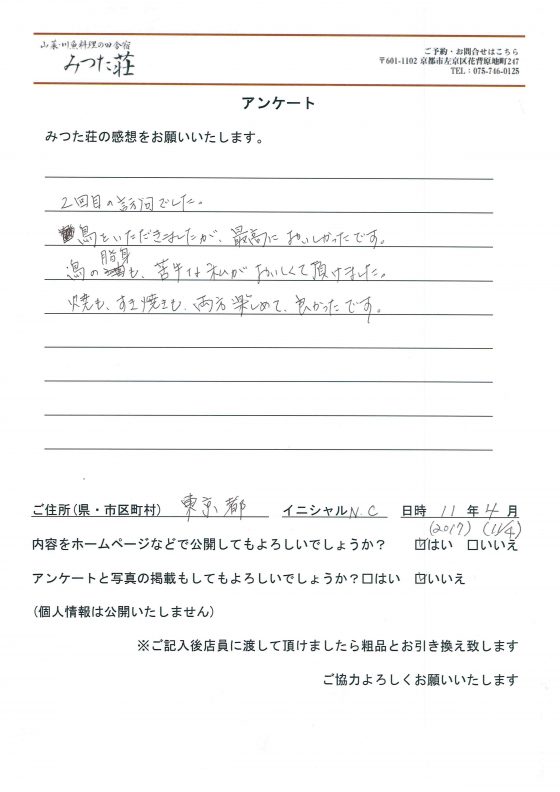 山菜・川魚料理の田舎宿
みつた荘
ご予約・お問合せはこちら
〒601-1102 京都市左京区花背原地町247
TEL:075-746-0125
アンケート
みつた荘の感想をお願いいたします。
2回目の訪問でした。
鳥をいただきましたが、最高においしかったです。
鳥の脂身も、苦手な私がおいしくて頂けました。
焼も、すき焼きも、両方楽しめて、良かったです。
ご住所(県・市区町村) 東京都 イニシャル N.C 日時 11 年 4 月
(2017) (11/4)
内容をホームページなどで公開してもよろしいでしょうか? ☑はい □いいえ
アンケートと写真の掲載もしてもよろしいでしょうか?□はい ☑いいえ
(個人情報は公開いたしません)
※ご記入後店員に渡して頂けましたら粗品とお引き換え致します
ご協力よろしくお願いいたします